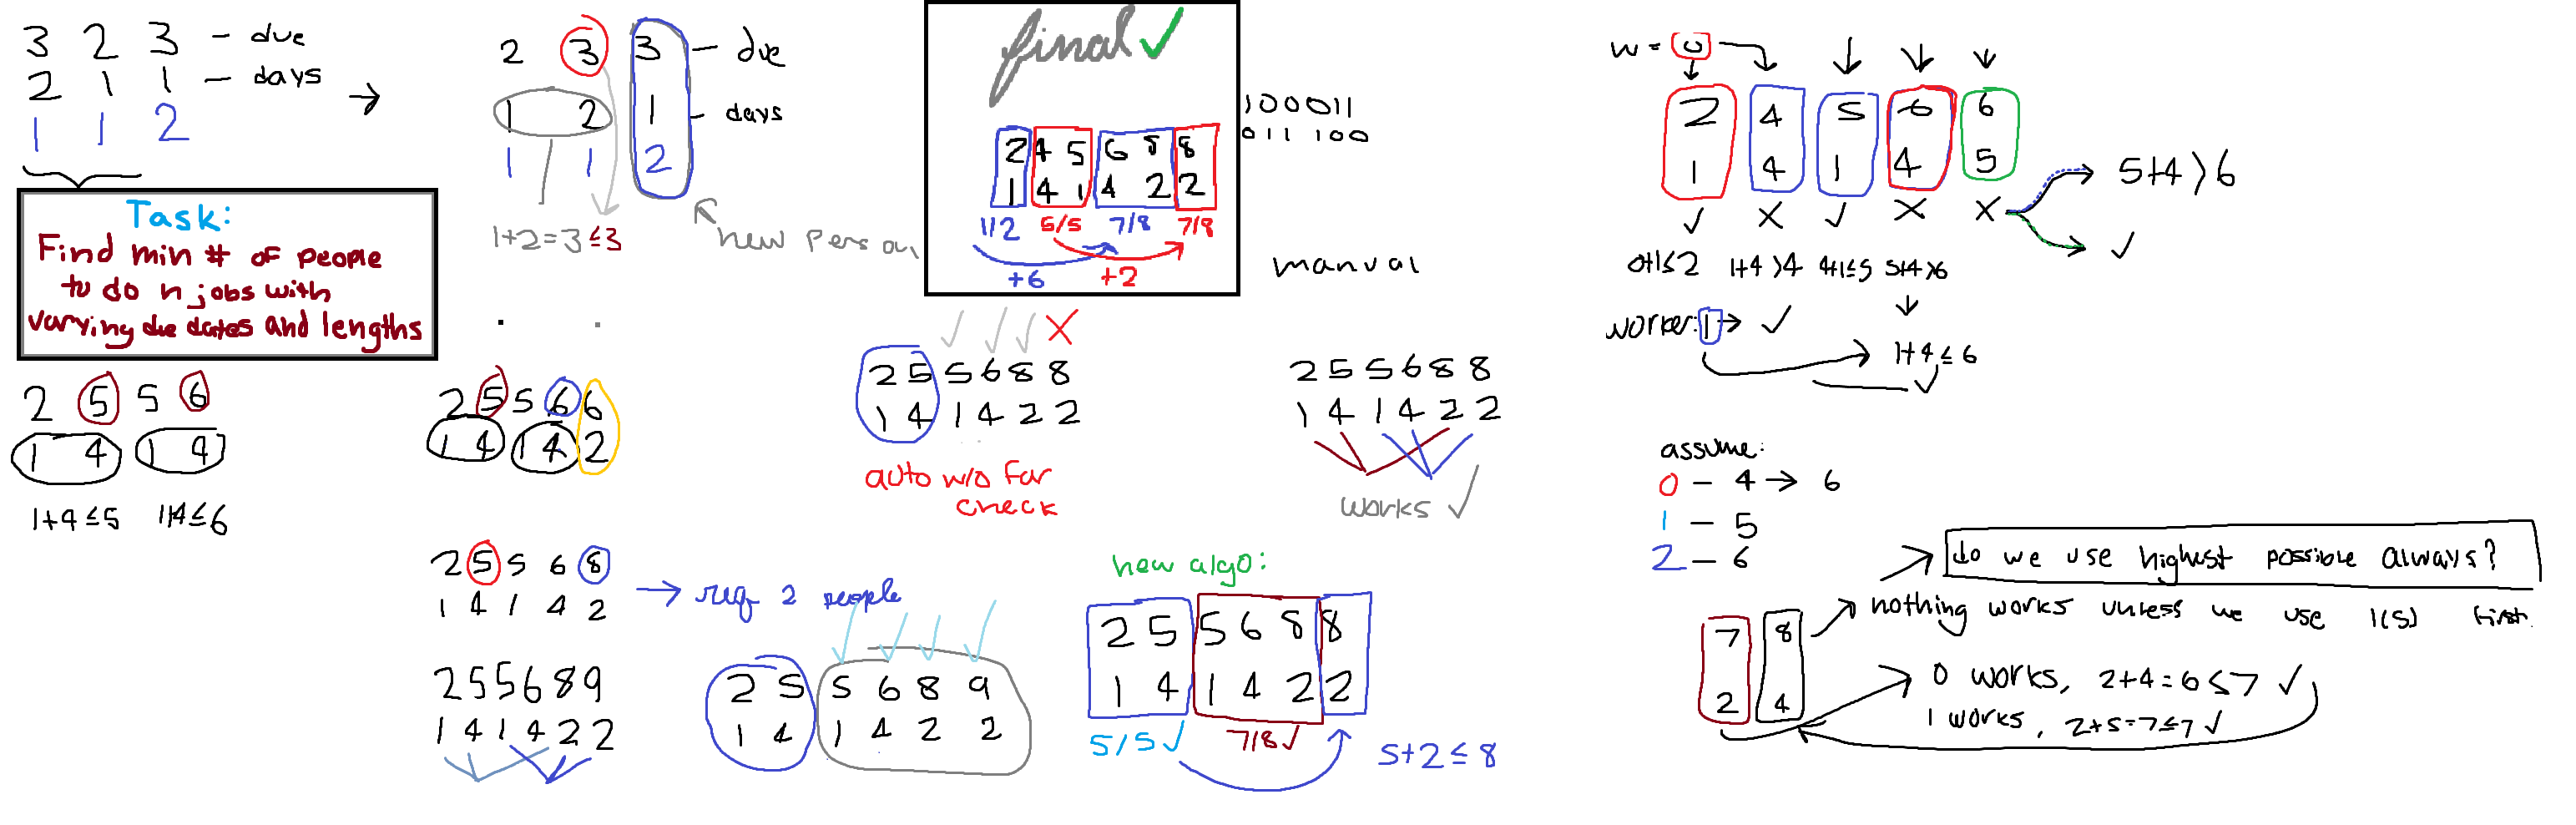 3 2 3 - due
2 1 1 - days
1 1 2
Task:
Find min # of people
to do n jobs with
varying due dates and lengths
2 5 5 6
1 4 1 4
1+4≤5 1+4≤6
2 3 3 - due
1 2 1 - days
1 1 2
1+2=3≤3
new person
2 5 5 6 6
1 4 1 4 2
2 5 5 6 8
1 4 1 4 2
→ req 2 people
2 5 5 6 8 9
1 4 1 4 2 2
2 5 5 6 8 9
1 4 1 4 2 2
final ✓
2 4 5 6 8 8
1 4 1 4 2 2
1/2 5/5 7/8 7/8
+6 +2
100011
011 100
manual
✓ ✓ ✓ X
2 5 5 6 8 8
1 4 1 4 2 2
auto w/o far
check
2 5 5 6 8 8
1 4 1 4 2 2
works ✓
new algo:
2 5 5 6 8 8
1 4 1 4 2 2
5/5 ✓ 7/8 ✓
5+2≤8
w = 0
2 4 5 6 6
1 4 1 4 5
✓ X ✓ X X
5+4>6
✓
0+1≤2 1+4>4 4+1≤5 5+4>6
worker: 1 → ✓
1+4≤6
✓
assume:
0 - 4 → 6
1 - 5
2 - 6
do we use highest possible always?
nothing works unless we use 1(s) first.
7 8
2 4
0 works, 2+4=6≤7 ✓
1 works, 2+5=7≤7 ✓